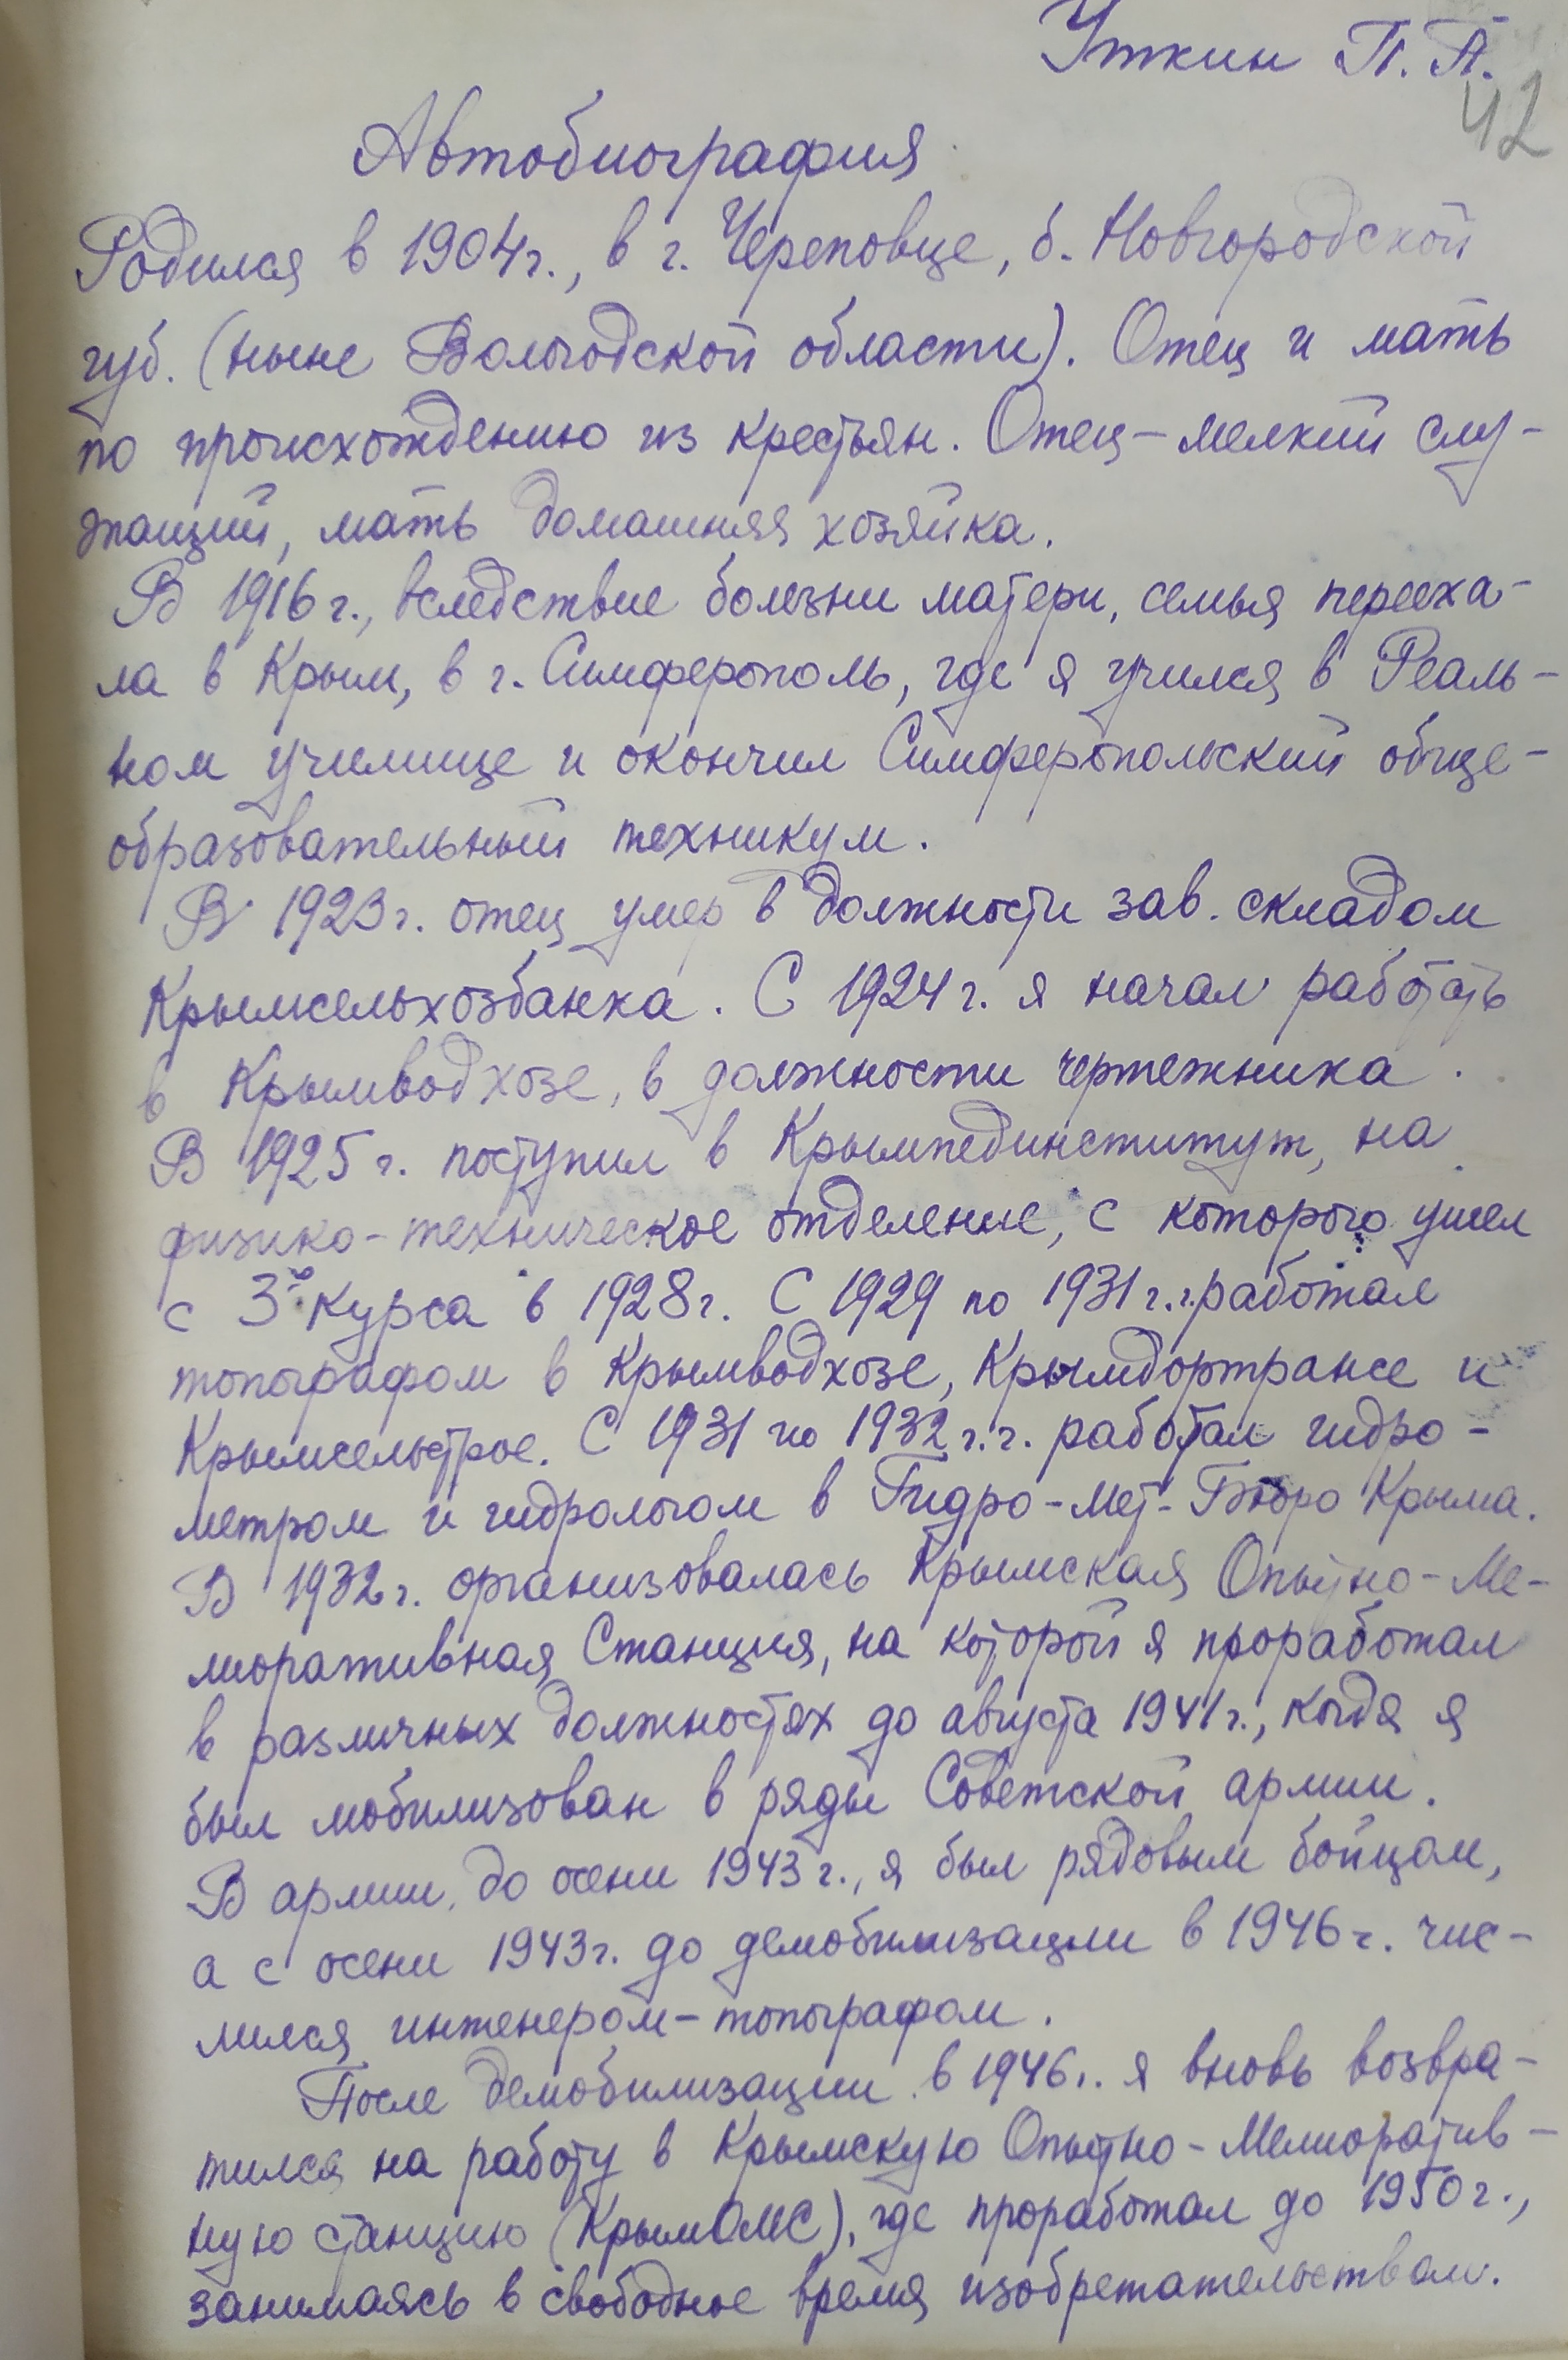 Уткин П. А.
42
Автобиография
Родился в 1904г., в г. Череповце, б. Новгородской
губ. (ныне Вологодской области). Отец и мать
по происхождению из крестьян. Отец – мелкий слу-
жащий, мать домашняя хозяйка.
В 1916г., вследствие болезни матери, семья перееха-
ла в Крым, в г. Симферополь, где я учился в Реаль-
ном училище и окончил Симферопольский обще-
образовательный техникум.
В 1923г. отец умер в должности зав. складом
Крымсельхозбанка. С 1924г. я начал работать
в Крымводхозе, в должности чертежника.
В 1925г. поступил в Крымпединститут, на
физико-техническое отделение, с которого ушел
с 3го курса в 1928г. С 1929 по 1931г.г. работал
топографом в Крымводхозе, Крымдортрансе и
Крымсельстрое. С 1931 по 1932г.г. работал гидро-
метром и гидрологом в Гидро-Мет-Бюро Крыма.
В 1932г. организовалась Крымская Опытно-Ме-
лиоративная Станция, на которой я проработал
в различных должностях до августа 1941г., когда я
был мобилизован в ряды Советской армии.
В армии, до осени 1943г., я был рядовым бойцом,
а с осени 1943г. до демобилизации в 1946г. чис-
лился инженером-топографом.
После демобилизации в 1946г. я вновь возвра-
тился на работу в Крымскую Опытно-Мелиоратив-
ную станцию (КрымОМС), где проработал до 1950г.,
занимаясь в свободное время изобретательством.